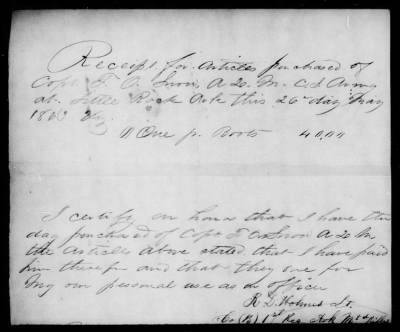 Receipt for Articles purchased of
Capt. F. A. Snow A. Q. M. C.S Army
at Little Rock Ark this 26 day May
1863
"One pr. Boots 40.00
I certify on honor that I have this
day purchased of Capt F A Snow A Q M
the Articles above stated that I have paid
him therefor and that they are for
my own personal use as an officer
R. D. Holmes Lt.
Co (B) 1st Reg Ark Mtd